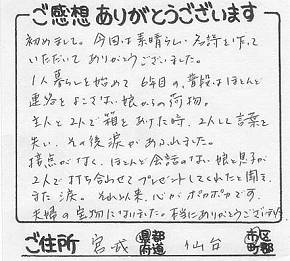 ご感想 ありがとうございます
初めまして。今回は素晴らしい名詩を作って
いただいて ありがとうございました。
1人暮らしを始めて 6年目の、普段はほとんど
連絡をよこさない娘からの荷物。
主人と2人で箱をあけた時、2人して言葉を
失い、その後涙があふれました。
接点がなく、ほとんど会話のない娘と息子が
2人で打ち合わせてプレゼントしてくれたと聞き、
また涙。それ以来、心がポカポカです。
夫婦の宝物になりました。本当にありがとうございます。
ご住所 宮城 県都府道 仙台 市区町郡